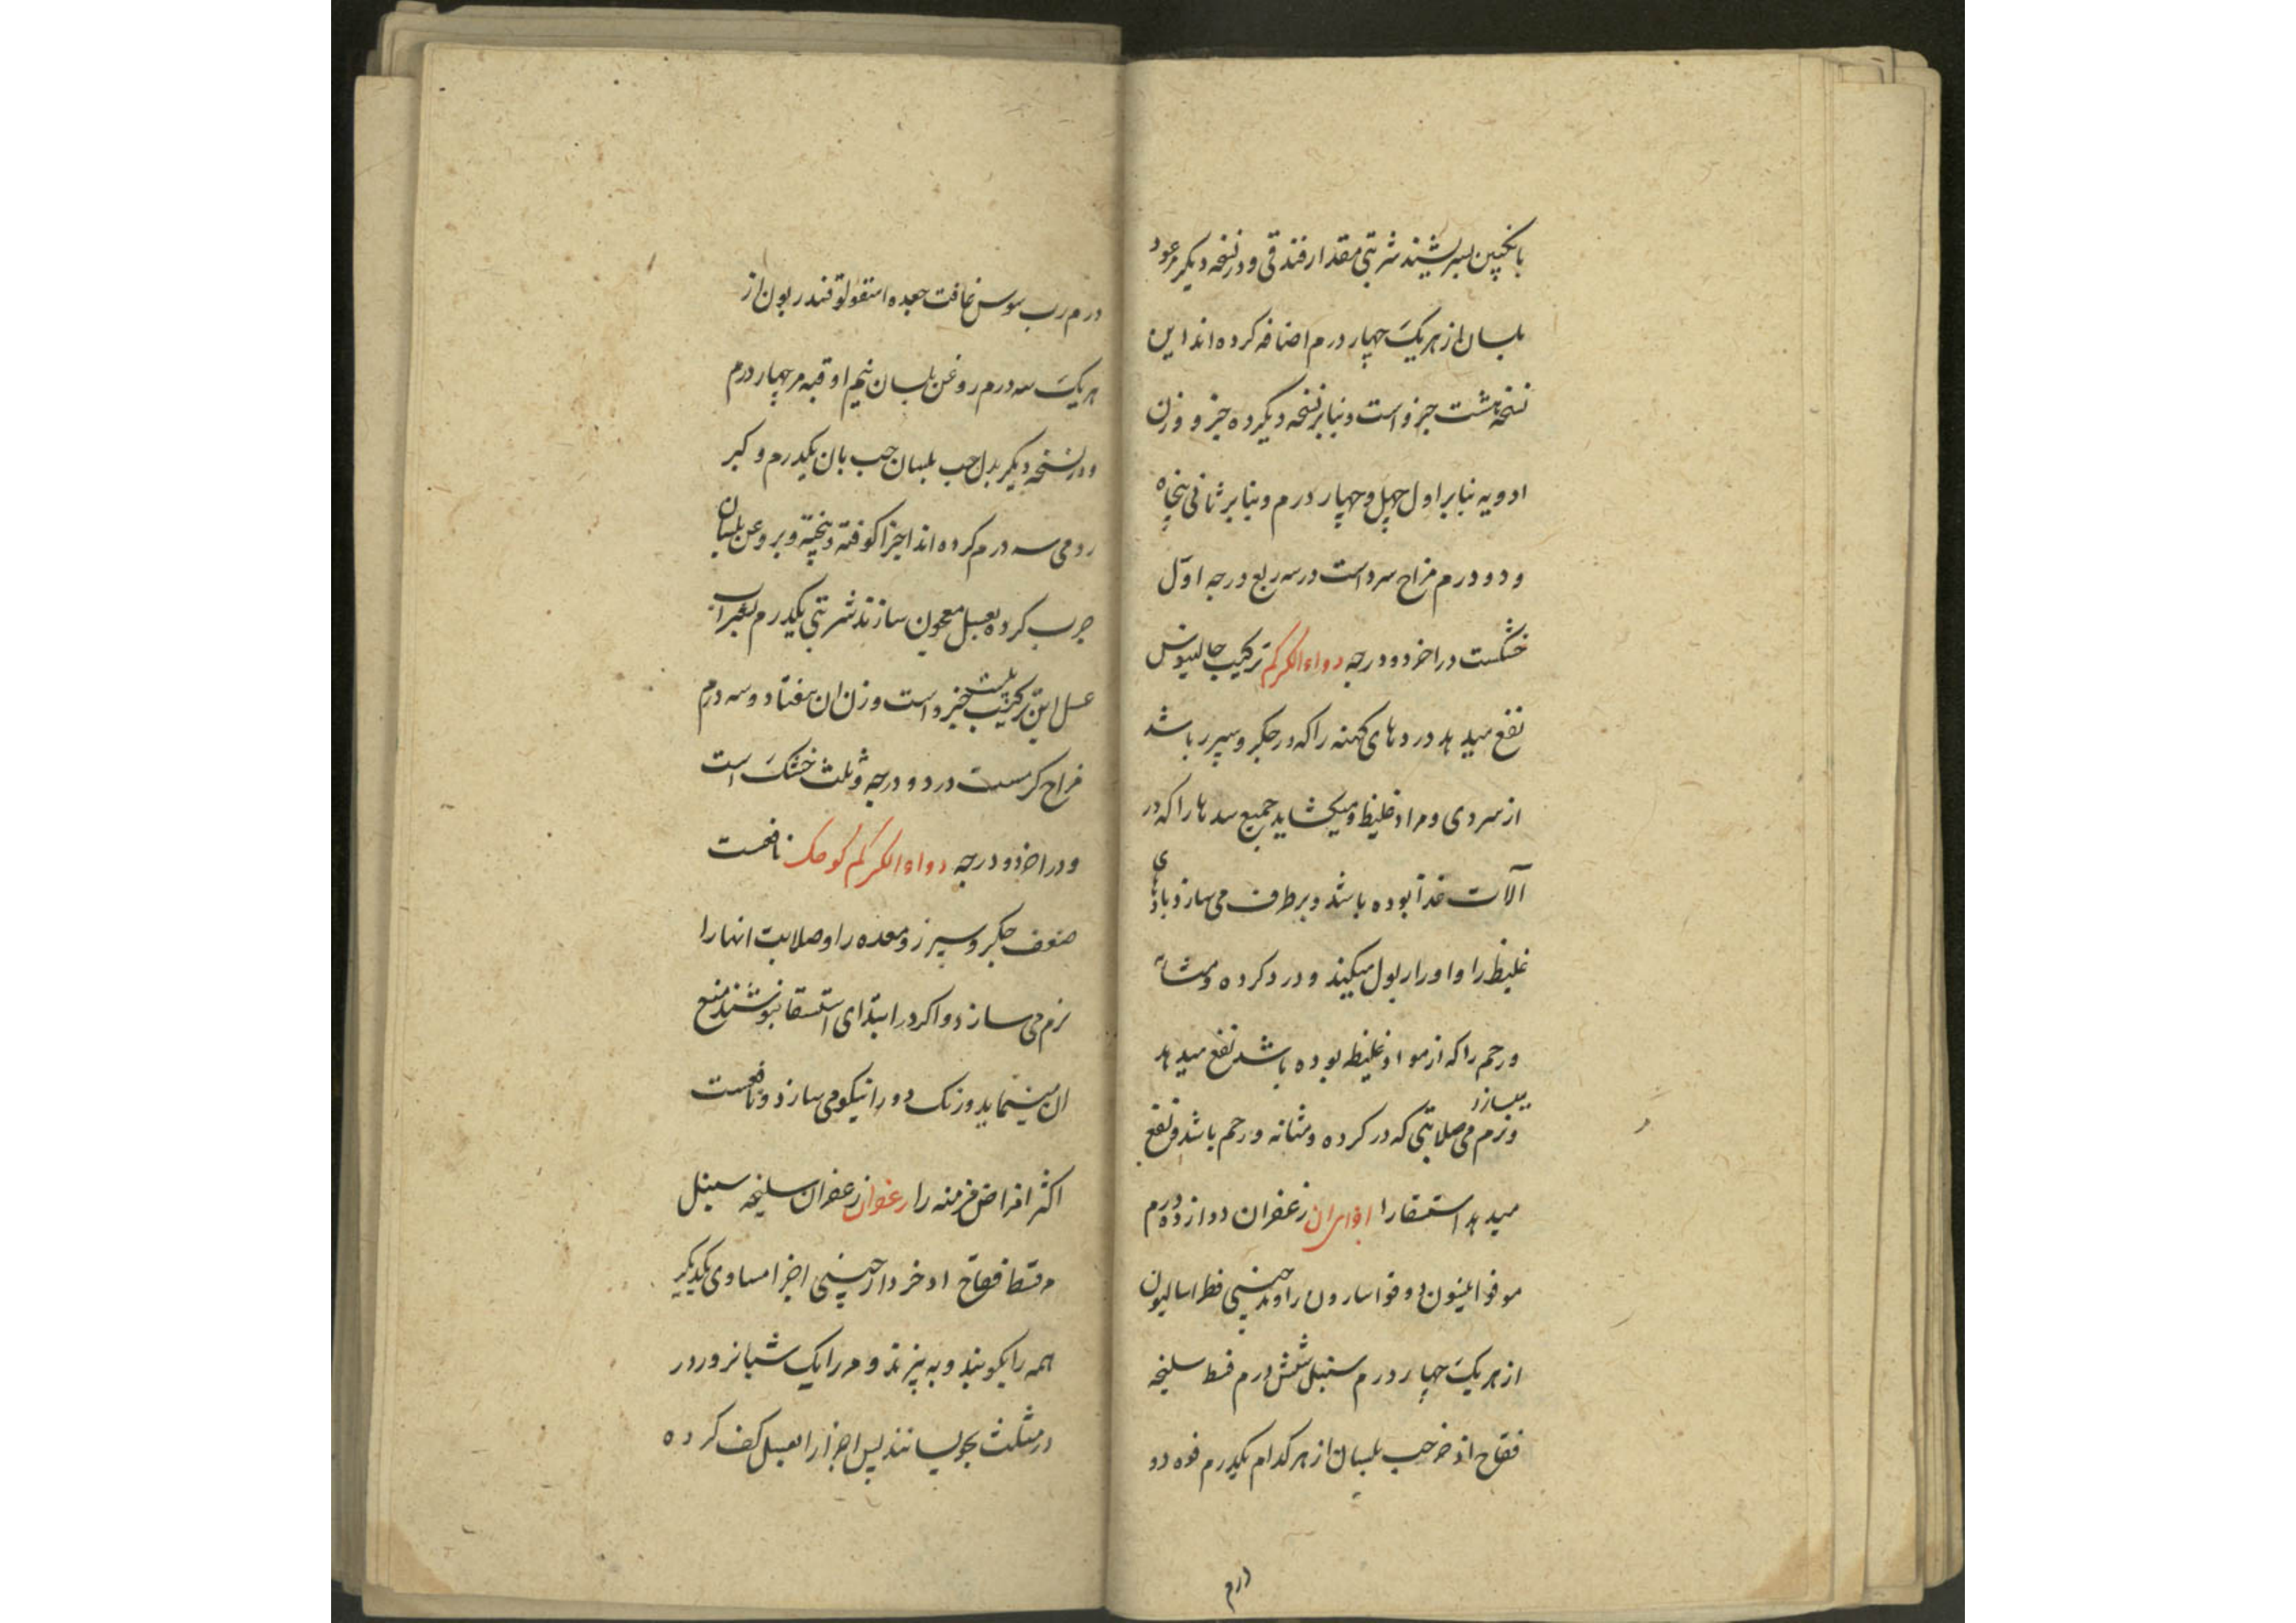 بانکبین بسرشیند شربتی مقدار فندقی و در نسخه دیگر عود
بلسان از هریک چهار درم اضافه کرده اند این
نسخه هشت جزو است و بنابر نسخه دیگر ده جزو وزن
ادویه بنابر اول چهل و چهار درم و بنابر ثانی پنجاه
و دو درم مزاج سرد است در سه ربع درجه اول
خشکست در اخر دو درجه دواء الکرکم ترکیب جالینوس
نفع میدهد دردهای کهنه را که در جکر و سپرز باشد
از سردی و مواد غلیظ و میکشاید جمیع سدها را که در
آلات غذا بوده باشد و برطرف می سازد بادهای
غلیظ را و ادرار بول میکند و درد کرده و مثانه
و رحم را که از مواد غلیظ بوده باشد نفع میدهد
و نرم میسازد صلابتی که در کرده و مثانه و رحم باشد و نفع
میدهد استسقا را اجزای ان زعفران دوازده درم
مو فوا دوقو اسارون راوند چینی فطراسالیون
از هریک چهار درم سنبل شش درم قسط سلیخه
فقاح اذخر حب بلسان از هر کدام یکدرم فوه دو
درم
درم رب سوس غافت جعده اسقولوقندریون از
هریک سه درم روغن بلسان نیم اوقیه مر چهار درم
و در نسخه دیگر بدل حب بلسان حب بان یکدرم و کبر
رومی سه درم کرده اند اجزا کوفته و پخته و بروغن بلسان
چرب کرده بعسل معجون سازند شربتی یکدرم بشراب
عسل این ترکیب جزو است وزن ان هفتاد و سه درم
مزاج کرمست در دو درجه و ثلث خشک است
و در اخر دو درجه دواء الکرکم کوچک نافعست
ضعف جکر و سپرز و معده را و صلابت انها را
نرم می سازد و اکر در ابتدای استسقا بنوشند منع
ان مینماید و رنک رو را نیکو می سازد و نافعست
اکثر امراض مزمنه را زعفران زعفران سلیخه سنبل
مر قسط فقاح اذخر دارچینی اجزا مساوی یکدیکر
همه را بکوبند و به پزند و مر را یک شبانروز در
در مثلث بخویسانند پس اجزا را بعسل کف کرده